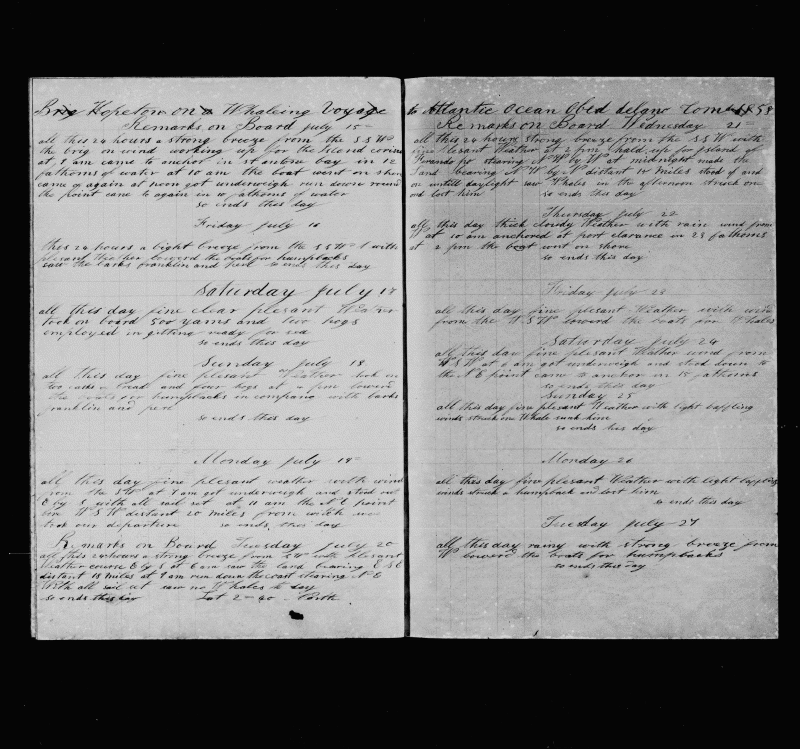 Brig Hopeton on a Whaleing Voyage
Remarks on Board July 15
all this 24 hours a strong breeze from the S S W
the brig on wind working up for the Island
at 7 am came to anchor in bay in 12
fathoms of water at 10 am the boat went on shore
came of again at noon got underweigh run down round
the point came to again in 10 fathoms of water
so ends this day
Friday July 16
this 24 hours a light breeze from the S S W with
plesant Weather lowerd the boats for humpbacks
saw the barks franklin and so ends this day
Saturday July 17
all this day fine clear plesant Weather
took on board 500 yams and two hogs
employed in gitting ready for sea
so ends this day
Sunday July 18
all this day fine plesant Weather took in
two casks bread and four hogs at pm lowerd
the boats for humpbacks in company with barks
franklin and
so ends this day
Monday July 19
all this day fine plesant weather with wind
from the SW at 7 am got underweigh and stood out
E by S with all sail set at 11 am the N E point
bore W S W distant 20 miles from witch we
took our departure so ends this day
Remarks on Board Tuesday July 20
all this 24 hours a strong breeze from SW with Plesant
Weather course E by S at 6 am saw the land bearing E S E
distant 18 miles at 9 am run down the coast stearing N E
With all sail set saw no Whales to day
so ends this day Lat 2-40 North
to Atlantic Ocean Obed delano Com 1858
Remarks on Board Wednesday 21
all this 24 hours strong breeze from the S S W with
fine Plesant Weather at 2 pm hauld up for Island of
stearing N W by W at midnight made the
Land bearing N W by N distant 14 miles stood of and
on untill daylight saw Whales in the afternoon struck on
and lost him so ends this day
Thursday July 22
all this day thick cloudy Weather with rain wind from
W at 10 am anchored at port clarance in 23 fathoms
at 2 pm the boat went on shore
so ends this day
Friday July 23
all this day fine plesant Weather with wind
from the W S W lowerd the boats for Whales
Saturday July 24
all this day fine plesant Weather wind from
W S W at 6 am got underweigh and stood down to
the N E point came to anchor in 15 fathoms
so ends this day
Sunday 25
all this day fine plesant Weather with light baffling
winds struck one Whale sunk him
so ends this day
Monday 26
all this day fine plesant Weather with light baffling
winds struck a humpback and lost him
so ends this day
Tuesday July 27
all this day rainy with strong breeze from
W lowerd the boats for humpbacks
so ends this day